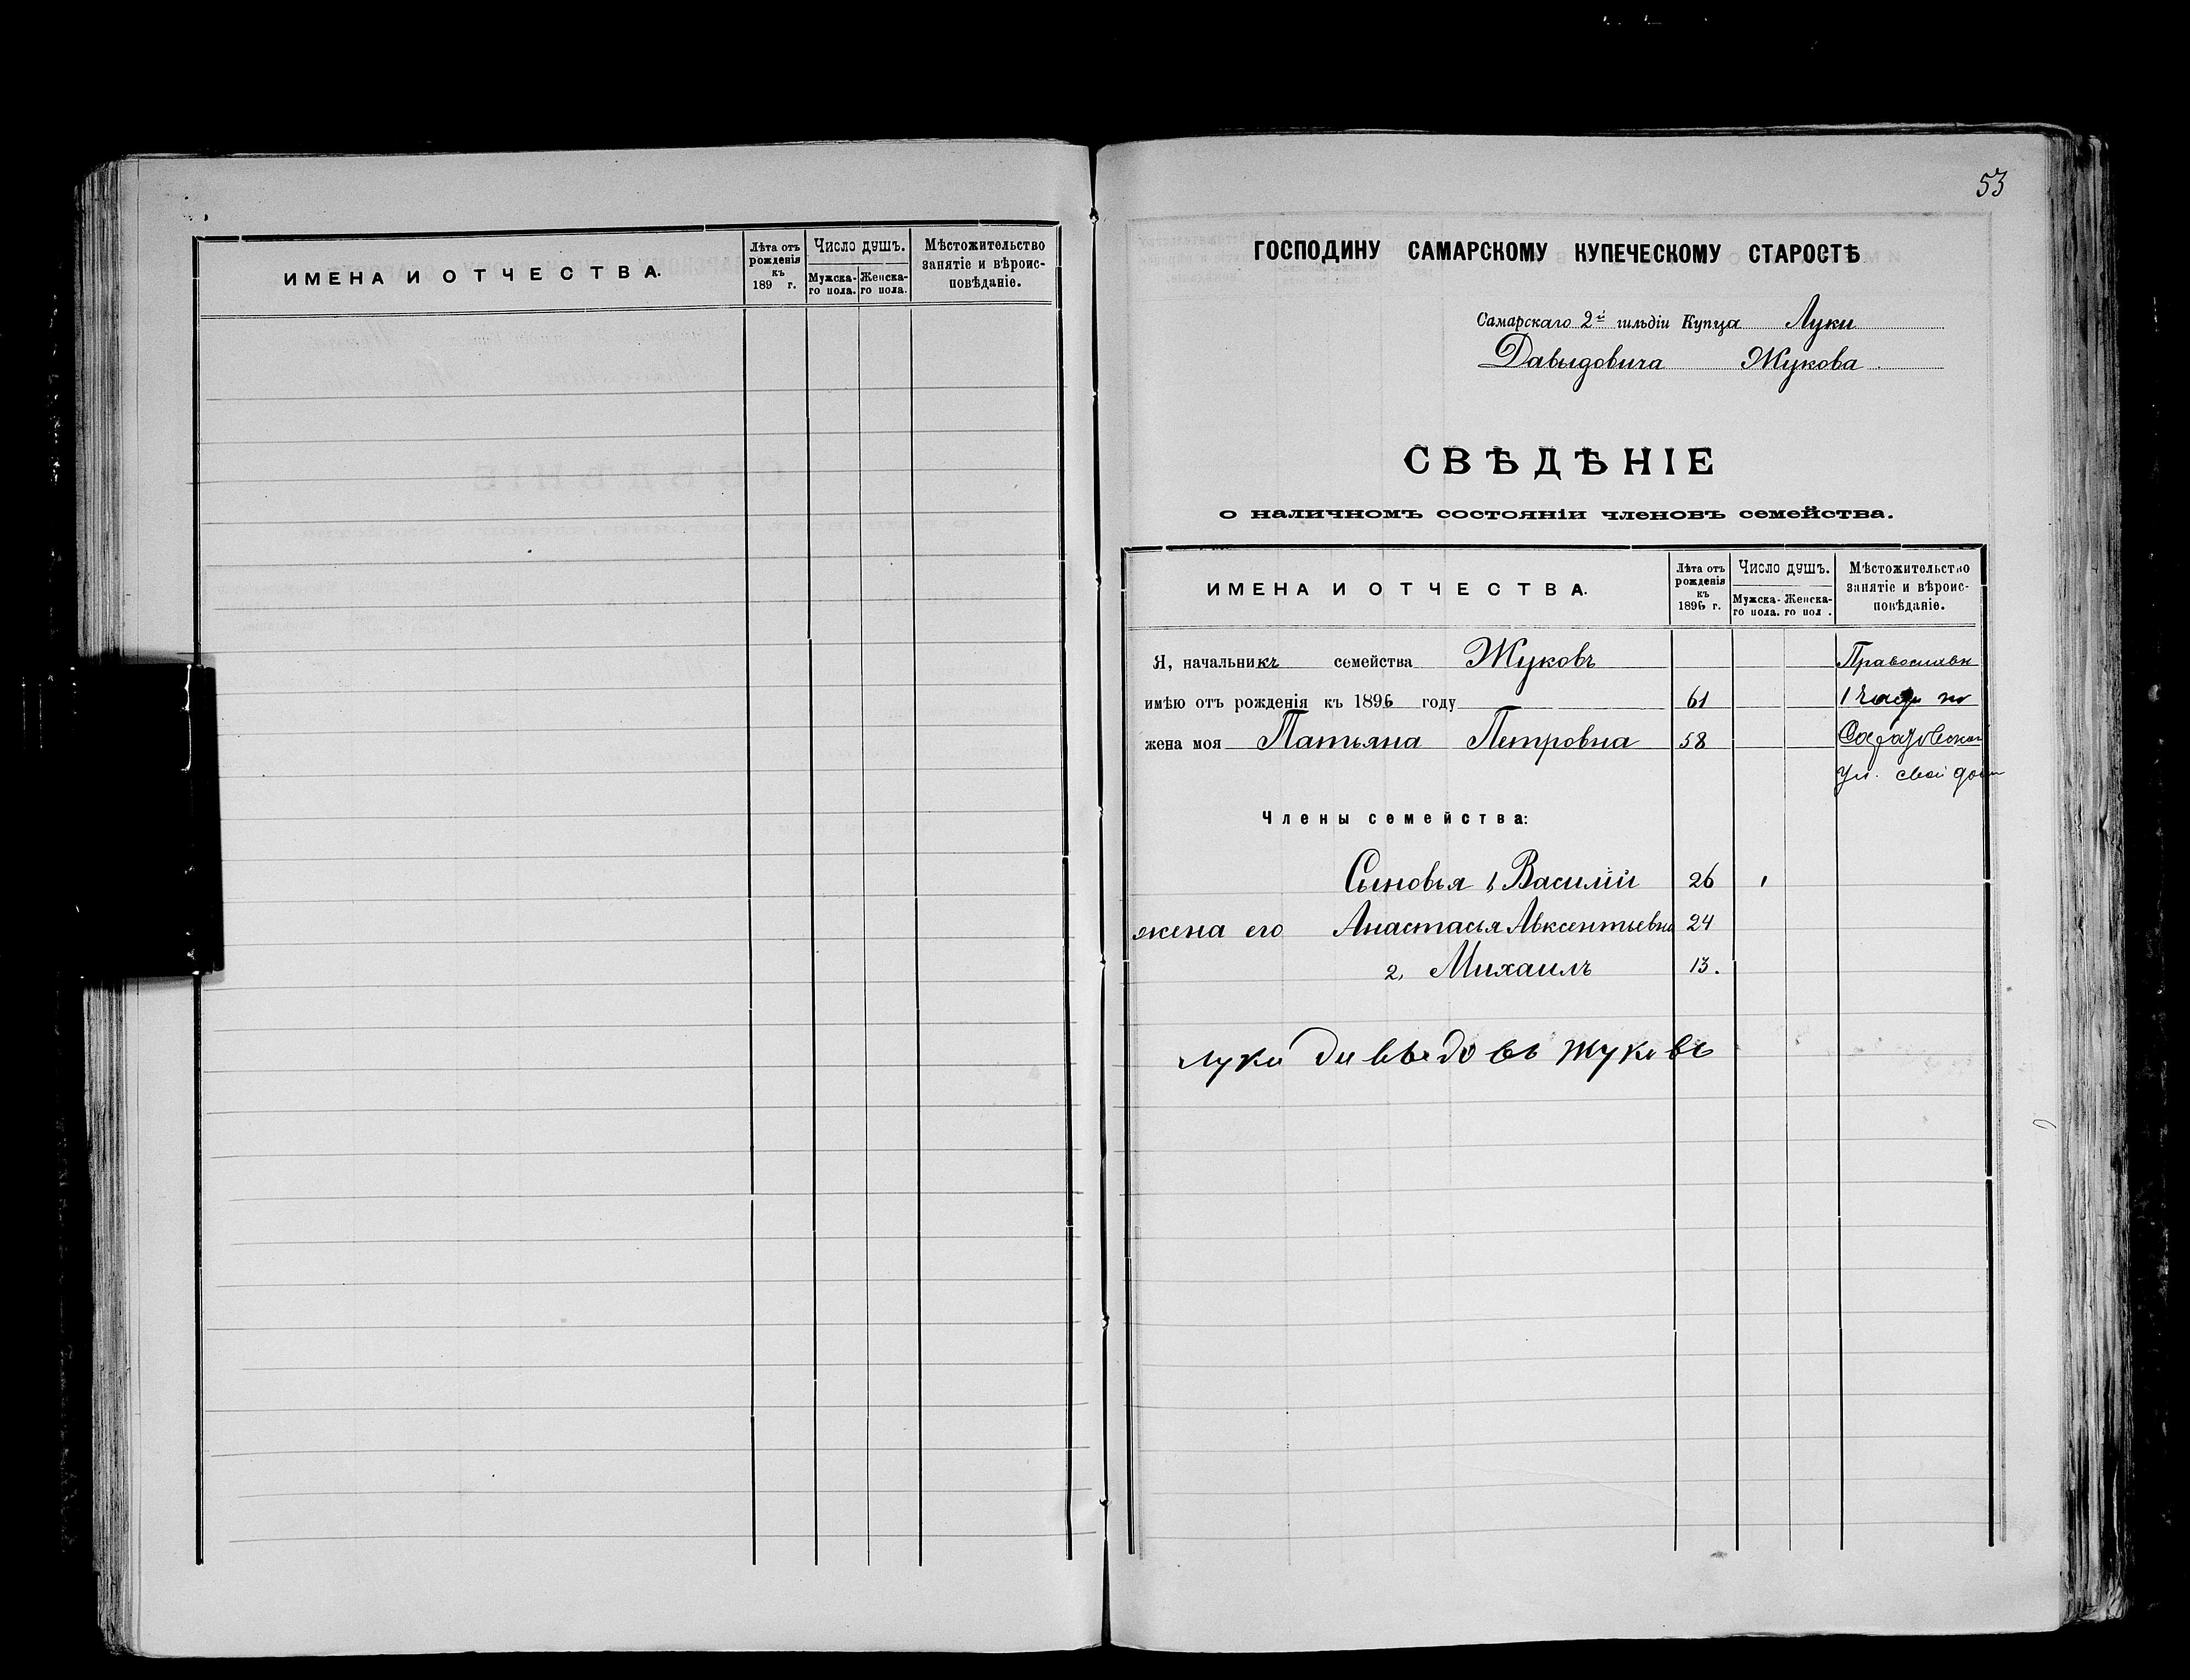 ИМЕНА И ОТЧЕСТВА.
Лѣта отъ рожденія къ 189 г.
Число душъ.
Мужска-го пола.
Женска-го пола.
Мѣстожительство занятіе и вѣроис-повѣданіе.
53
ГОСПОДИНУ САМАРСКОМУ КУПЕЧЕСКОМУ СТАРОСТѢ
Самарскаго 2й гильдіи Купца Луки
Давыдовича Жукова
СВѢДѢНІЕ
о наличномъ состояніи членовъ семейства.
ИМЕНА И ОТЧЕСТВА.
Лѣта отъ рожденія къ 1896 г.
Число душъ.
Мужска-го пола.
Женска-го пол .
Мѣстожительство занятіе и вѣроис-повѣданіе.
Я, начальникъ семейства Жуковъ Православн
имѣю отъ рожденія къ 1896 году 61 1 по
жена моя Татьяна Петровна 58
ул. свой домъ
Члены семейства:
Сыновья 1, Василій 26 1
жена его Анастасья Авксентьевна 24
2, Михаилъ 13.
Лука Давыдовъ Жуковъ